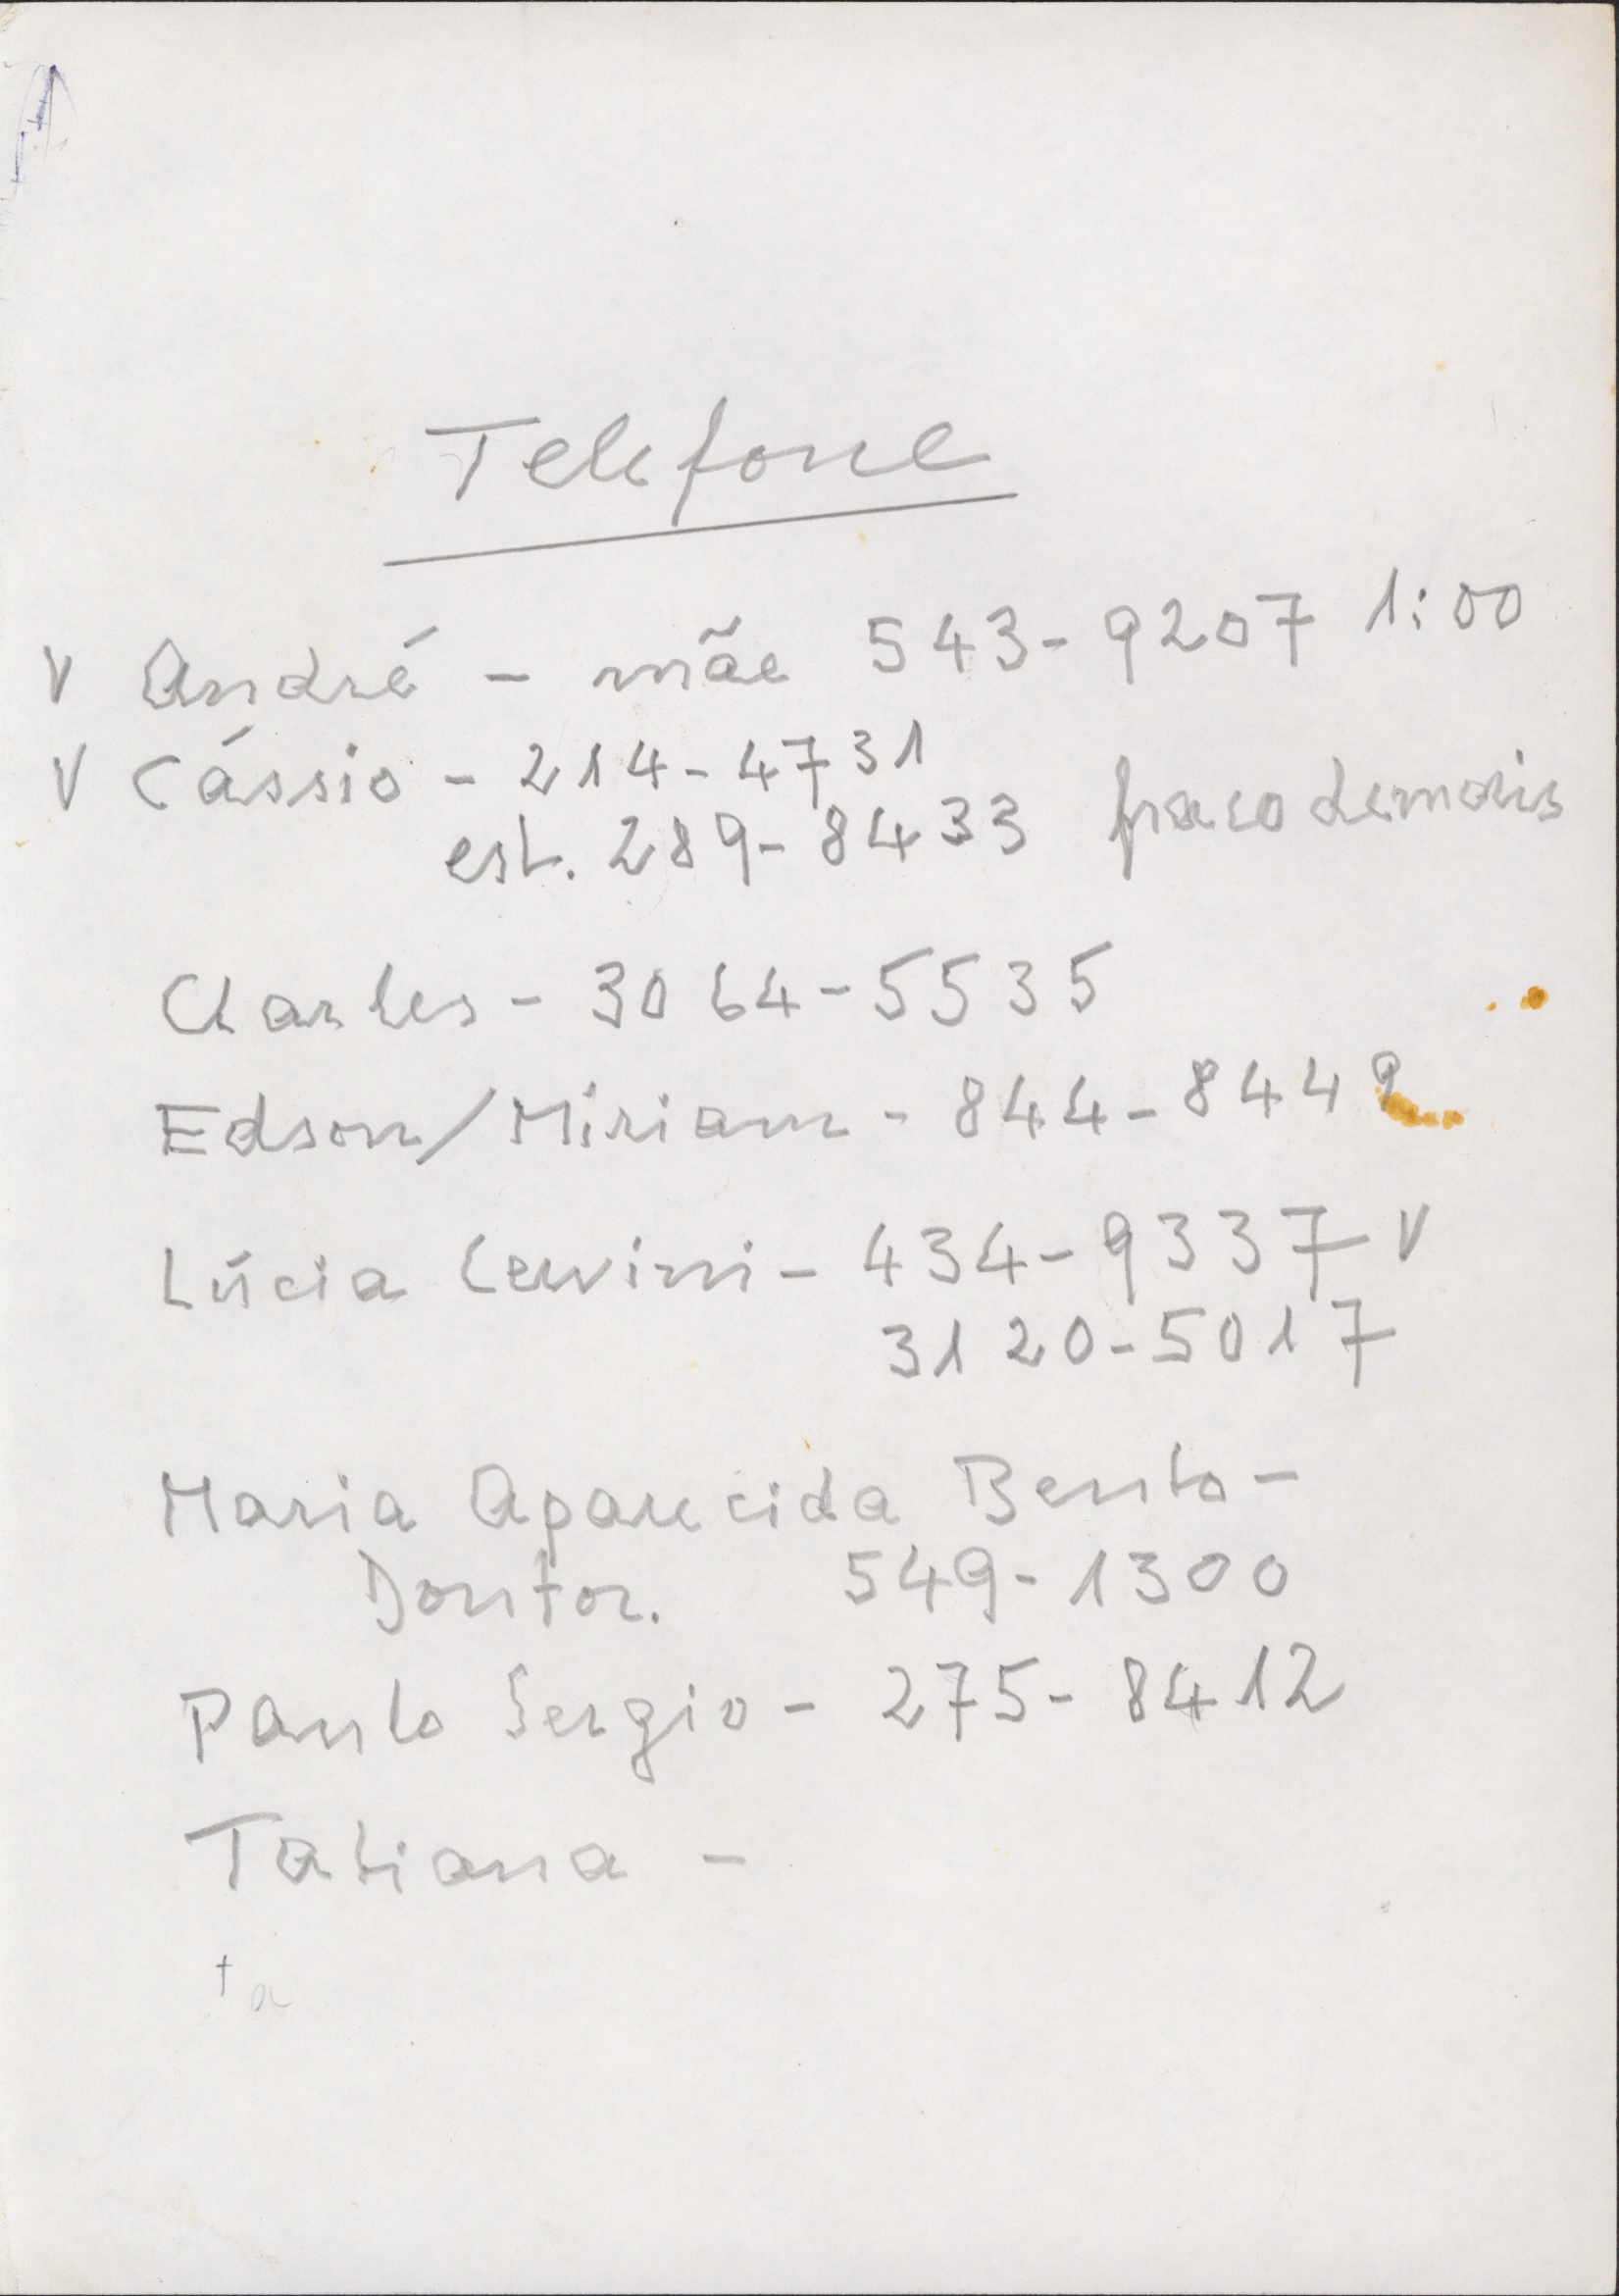 Telefone
V André - mãe 543-9207 1:00
V Cássio - 214-4731
est. 289-8433 fraco demais
Charles - 3064-5535
Edson/Miriam - 844-8449
Lúcia Cervini - 434-9337 V
3120-5017
Maria Aparecida Bento -
Doutor. 549-1300
Paulo Sergio - 275-8412
Tatiana -
ta